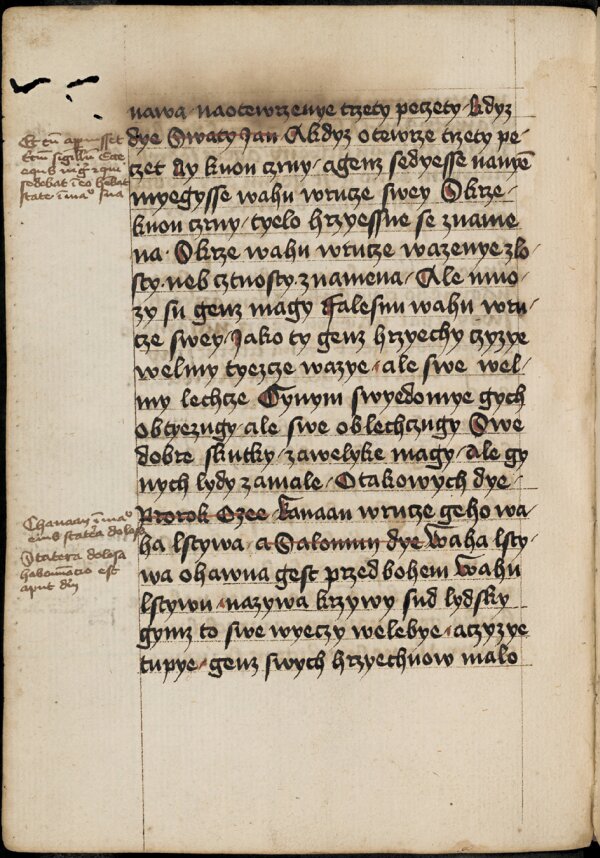 nawa · naotewrzenye trzety peczety · kdyz
dye Swaty Jan Akdyz otewrze trzety pe-
czet Ay kuon czrny · agenz sedyesse nanyem
myegysse wahu wrucze swey Skrze-
kuon czrny · tyelo hrzyessne se zname
na · Skrze wahu wrucze wazenye zlo-
sty · neb cztnosty · znamena · Ale mno-
zy su genz magy falesnu wahu wru-
cze swey · Jako ty genz hrzyechy czyzye
welmy tyezcze wazye · ale swe wel-
my lechcze Cynym swyedomye gych
obtyezugy · ale swe oblechczugy Swe
dobre skutky · zawelyke magy · Ale gy
nych lydy zamale · Otakowych dye ·
Prorok Ozee · Kanaan wrucze geho wa-
ha lstywa · a Salomun dye Waha lsty-
wa ohawna gest przed bohem Wahu
lstywu · nazywa krzywy sud lydsky
gymz to swe wyeczy welebye · aczyzye
tupye · genz swych hrzyechuow malo
Et cum aperuisset
sigillum Ecce
equus niger qui
sedebat in eo habebat
stateram in manu sua
Chanaan in manu
eius statera dolosa
Statera dolosa
habominacio est
aput dm